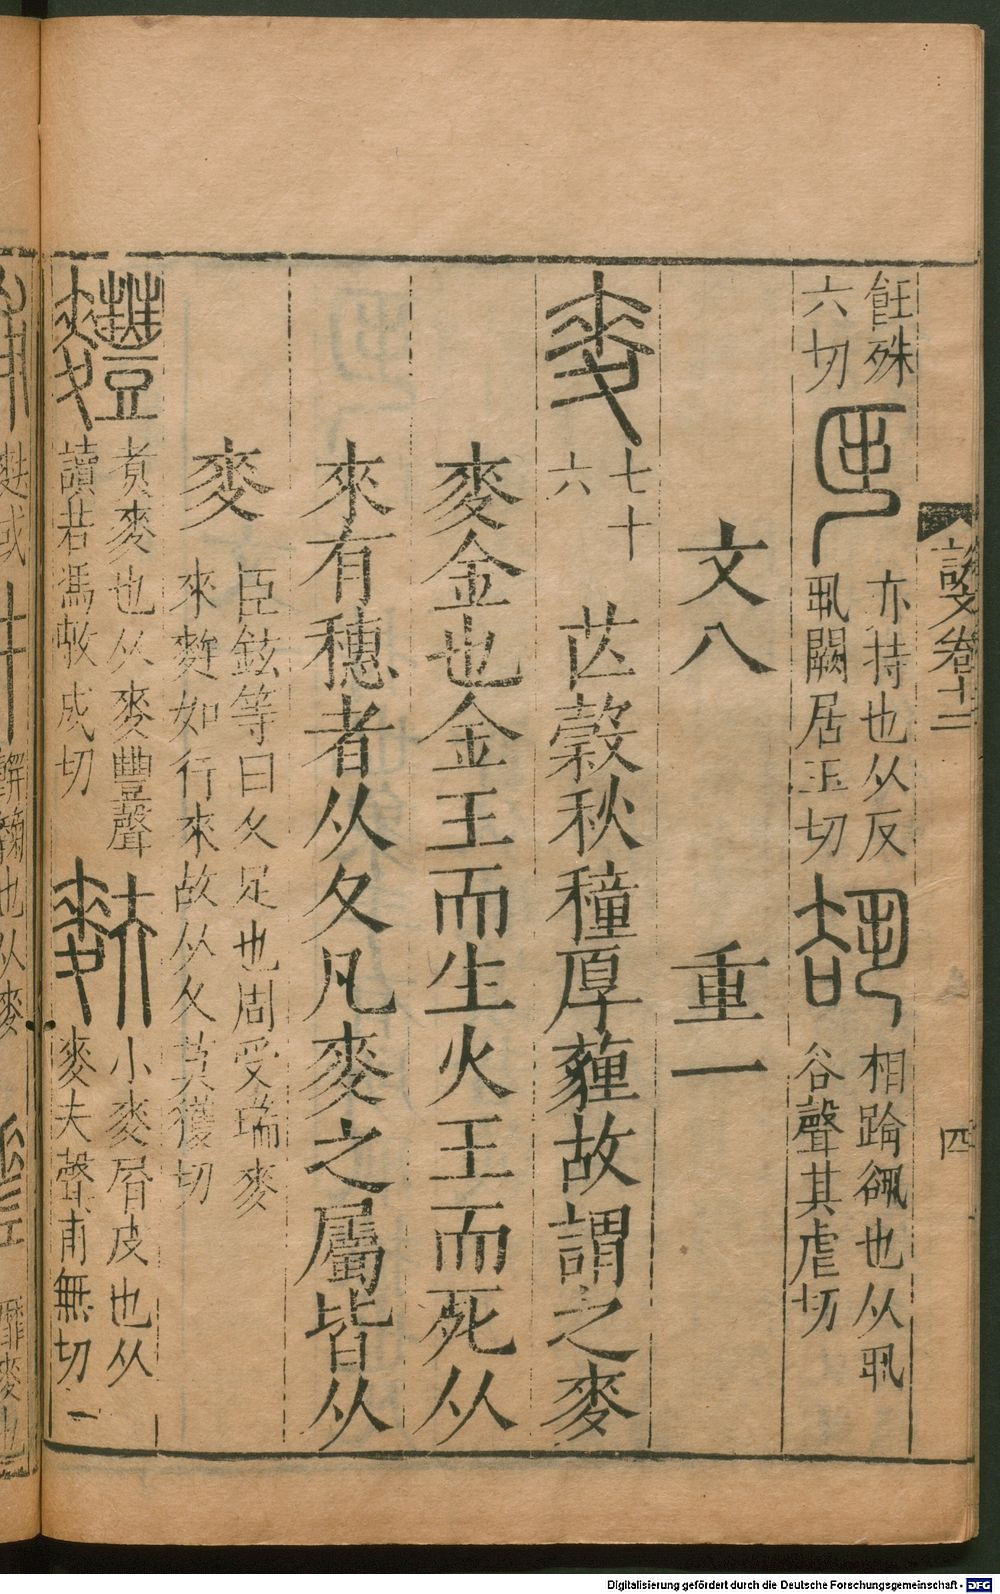 說文卷十二
四
飪殊
六切
亦持也从反
丮闕居玉切
相踦𧮫也从丮
谷聲其虐切
文八
重一
麥
七十
六
芒穀秋穜厚薶故謂之麥
麥金也金王而生火王而死从
來有穗者从夊凡麥之屬皆从
麥
臣鉉等曰夊足也周受瑞麥
來麰如行來故从夊莫獲切
煑麥也从麥豐聲
讀若馮敷戎切
麩
小麥屑皮也从
麥夫聲甫無切
Digitalisierung gefördert durch die Deutsche Forschungsgemeinschaft - DFG